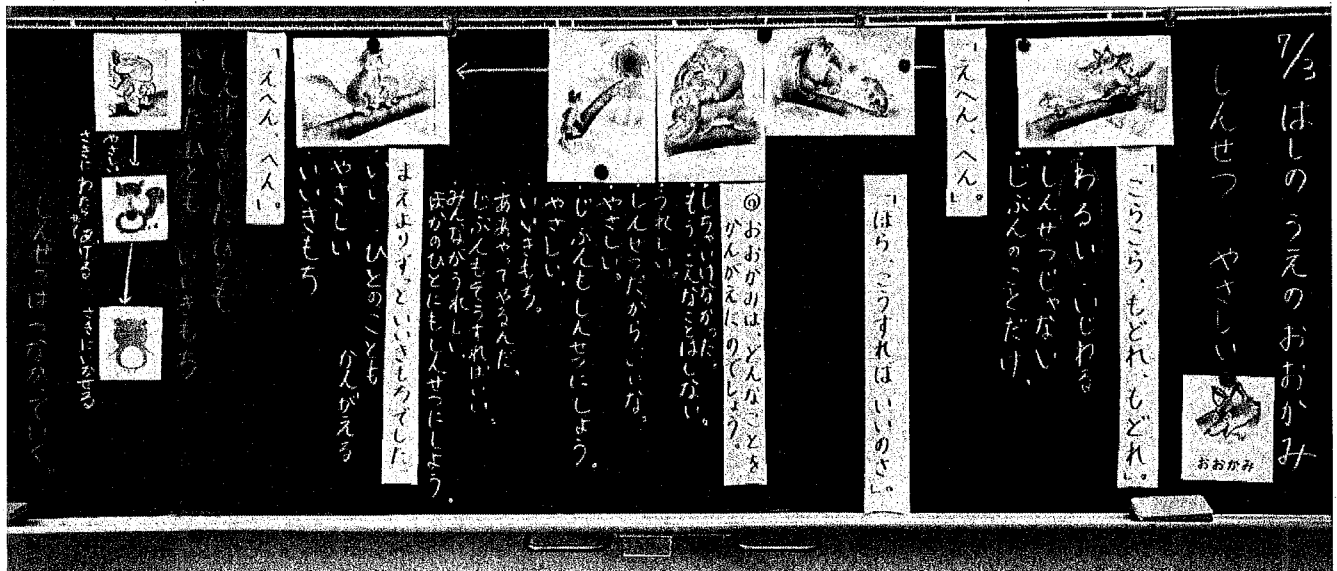 7/3 はしのうえのおおかみ
しんせつ やさしい
おおかみ
「こらこら、もどれ、もどれ。」
・わるい・いじわる
・しんせつじゃない
・じぶんのことだけ、
「えへん、へん。」
「ほら、こうすればいいのさ」。
◎おおかみは、どんなことを
かんがえたのでしょう。
しちゃいけなかった。
もう・えなことはしない。
うれしい。
しんせつだから、いいな。
やさしい。
・じぶんもしんせつにしよう。
やさしい、
・いいきもち。
ああやってやるんだ、
じぶんもそうすればいい、
みんながうれしい
ほかのひとにもしんせつにしよう。
まえよりずっといいきもちでした
いい ひとのことも
かんがえる
やさしい
いいきもち
「えへん、へん」。
しんせつにしたひとも
されたひとも いいきもち
やさしい
さきにわたらせてあげる
さきにいかせる
しんせつはつながっていく